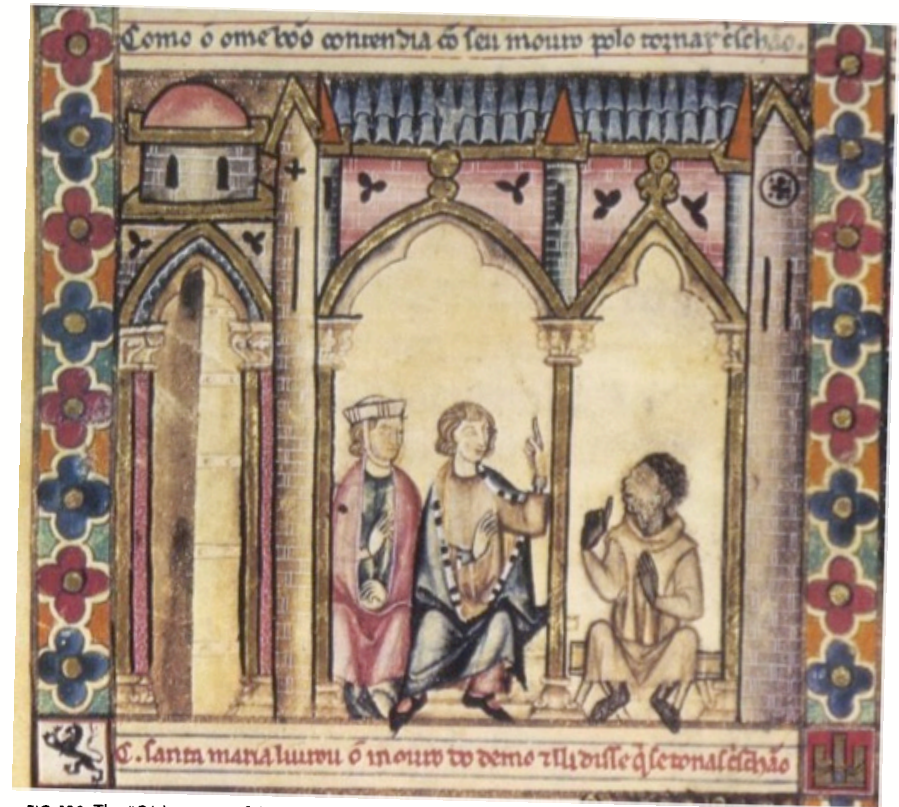 Como o ome bõo contendia cõ seu mouro polo tornar c̃schão.
C. santa maria liurou o mouro do demo ⁊ lli disse q̃ se tornas c̃schão